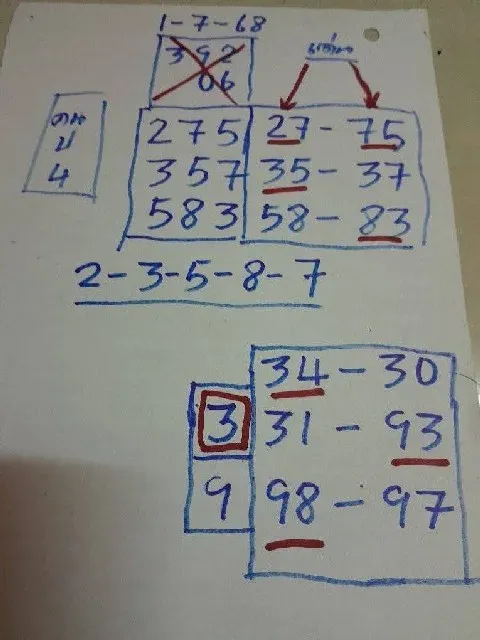 1-7-68
3 9 2
06
275 27 - 75
357 35 - 37
583 58 - 83
4
2-3-5-8-7
34 - 30
3 31 - 93
9 98 - 97